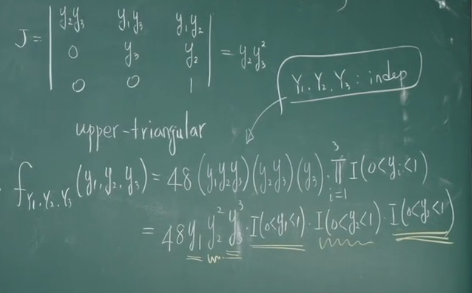 J = | y₂y₃ y₁y₃ y₁y₂ |
| 0 y₃ y₂ | = y₂y₃²
| 0 0 1 |
Y₁, Y₂, Y₃ : indep
upper-triangular
f_{Y₁,Y₂,Y₃}(y₁, y₂, y₃) = 48 (y₁y₂y₃)(y₂y₃)(y₃) · ∏_{i=1}^{3} I(0<yᵢ<1)
= 48 y₁ y₂² y₃³ · I(0<y₁<1) · I(0<y₂<1) · I(0<y₃<1)